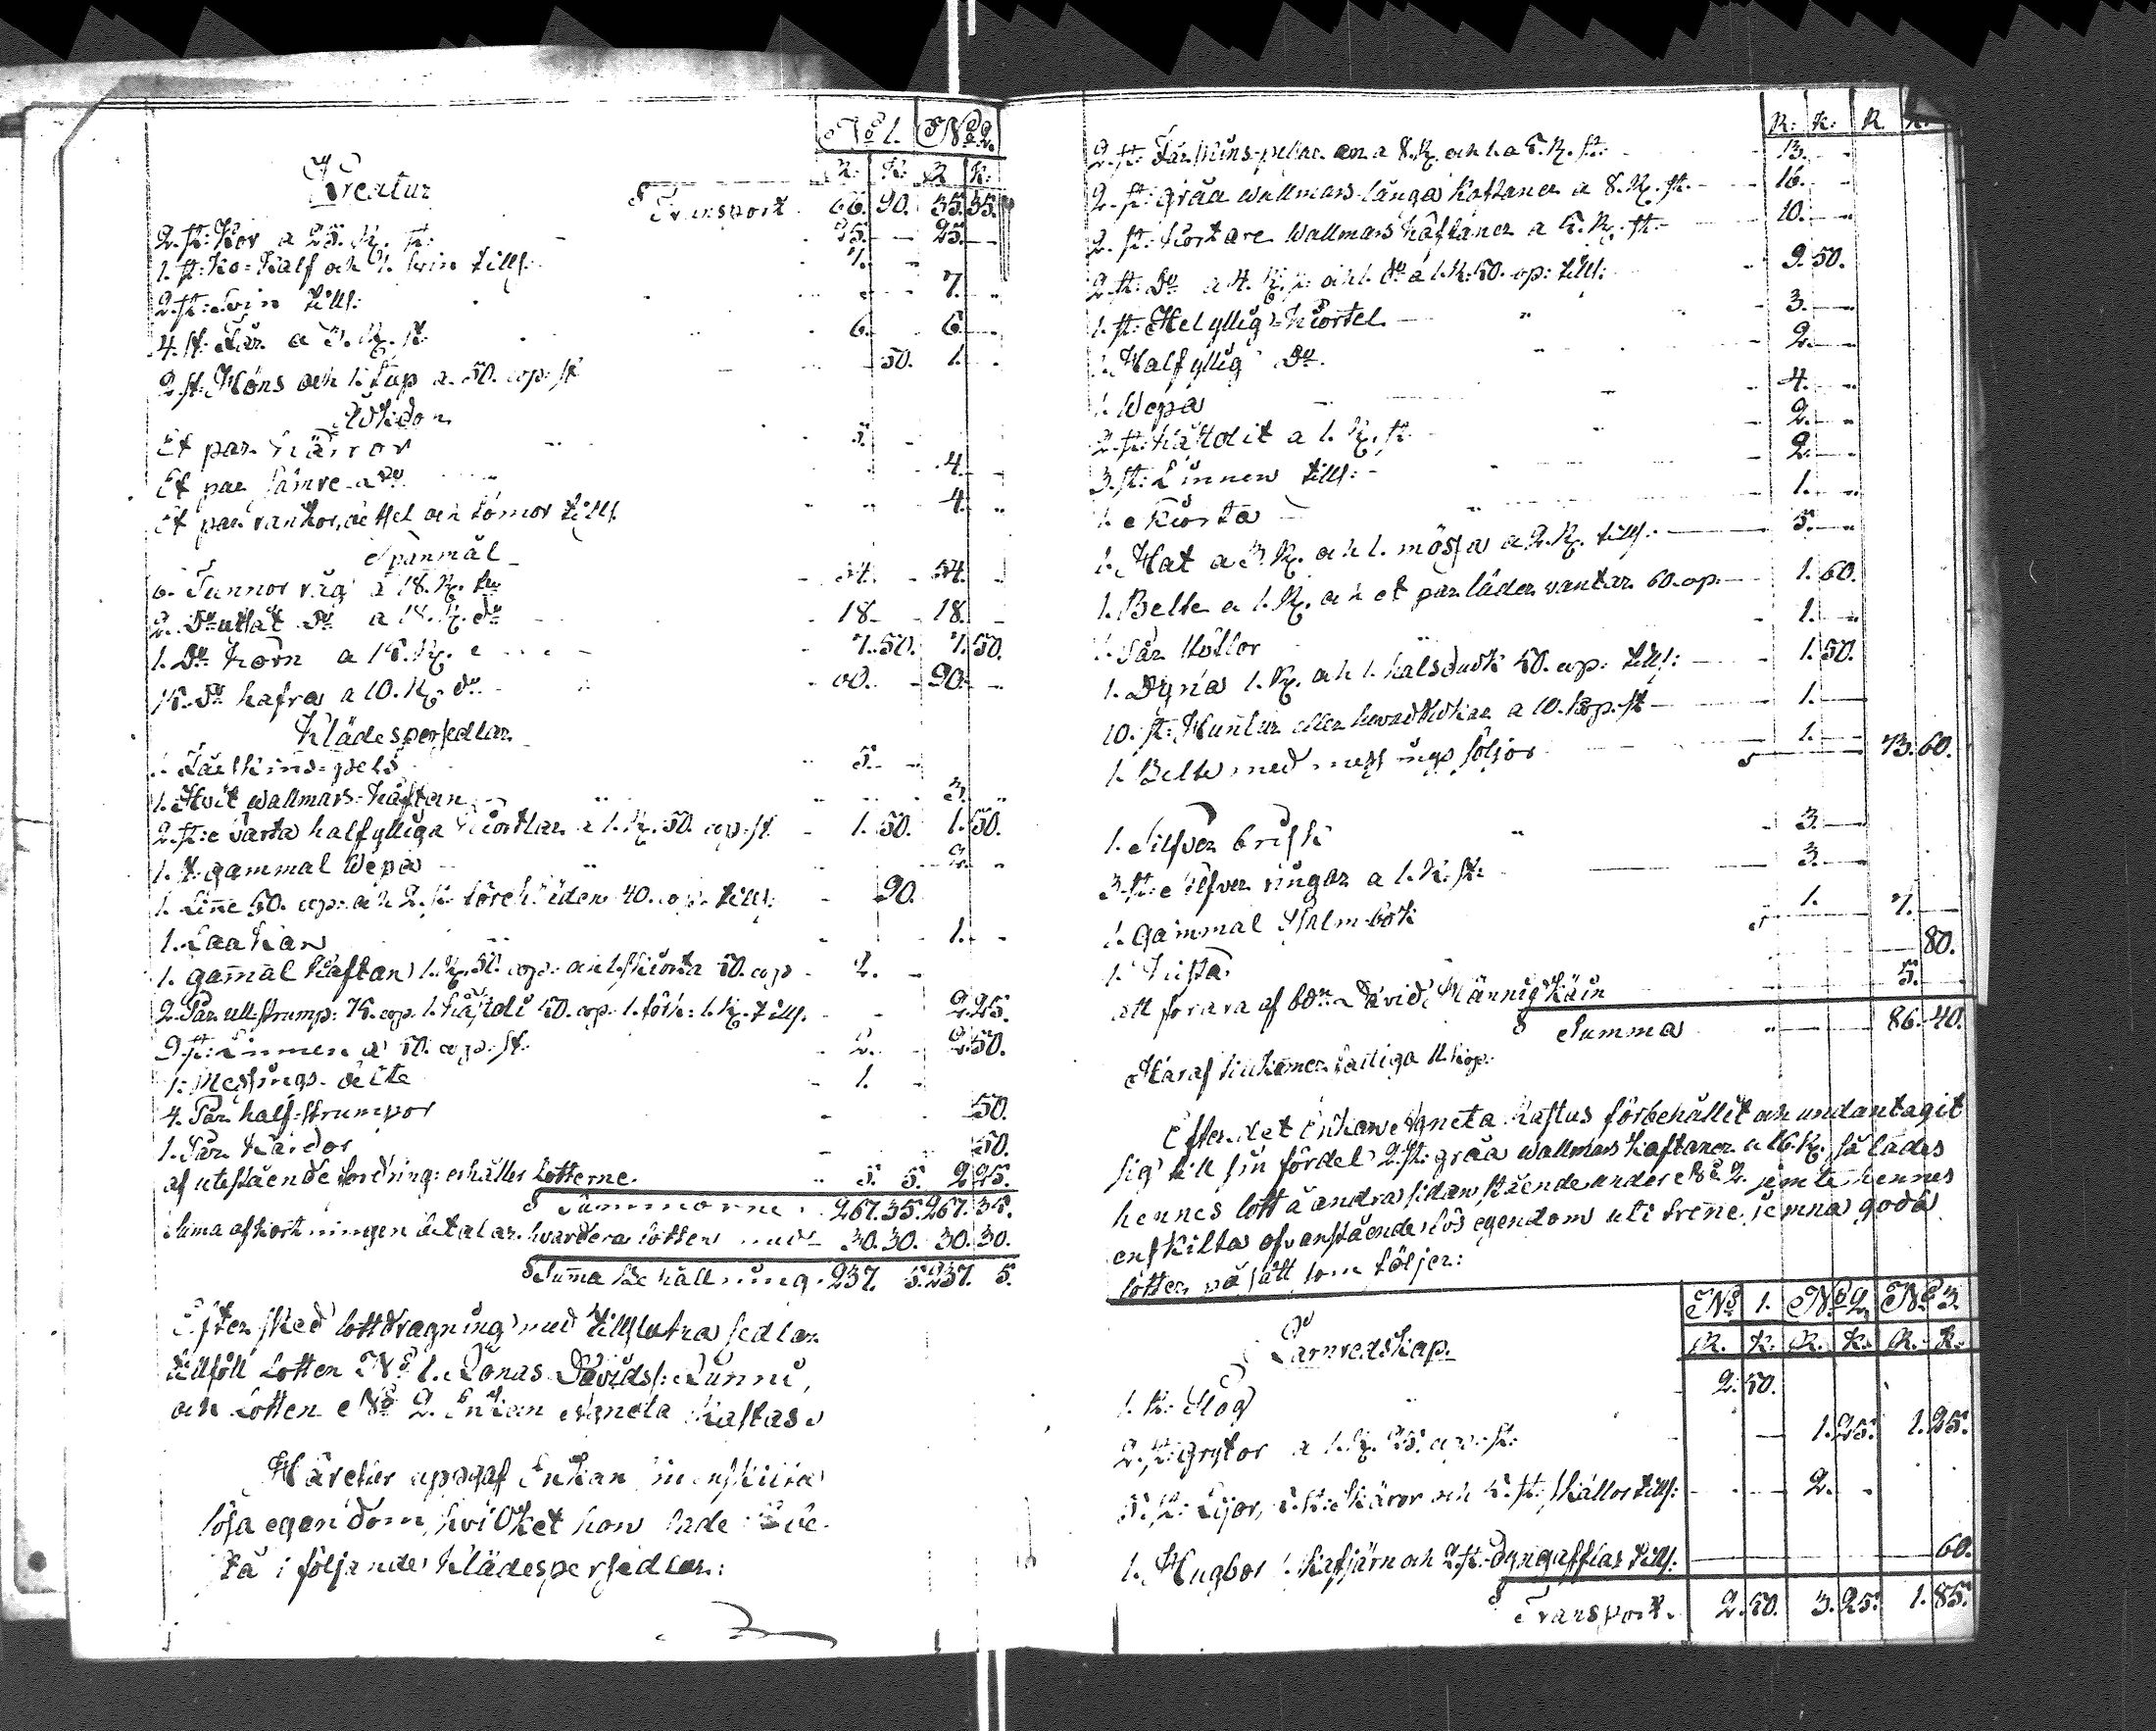 No 1. No 2.
Kreatur R: K: R K:
Transport 66. 90. 35. 35.
2. st: Kor a 25. R. st: 25. 25.
1. st: Ko-Kalf och 1. svin tills: 7.
2. st: Svin tills: 7.
4. st: Får a 3. R. st. 6. 6.
2. st. Höns och 1. Tup a. 50. cop: st 50. 1.
Åkdon
Et par Kärror 5.
Et par sämre do 4.
Et par rankor, och tömor tills. 4.
Spanmål
6. Tunnor råg a 18. R. tn 54. 54.
2. Do utsåt do a 18. R. do 18. 18.
1. Do Korn a 15. R. 7. 50. 7. 50.
15. do hafra a 10. R. do 60. 90.
Klädespersedlar
1. Fårskins-pels 5.
1. Hvit wallmars-Kaftan 3.
2. st: svarta halfylliga Kiortlar a 1. R. 50. cop: st 1. 50. 1. 50.
1. st gammal Wepa 2.
1. Line 50. cop: och 2. st: förekläden 40. cop. tills: 90.
1. Laakan 1.
1. gamal Kaftan 1. R. 50. cop: och 1. skiorta 50. cop 2.
2. Par ull strump: 75. cop. 1. 50. cop. 1. förk: 1. R. tills. 2. 25.
9. st: Linnen a 50. cop: st 2. 2. 50.
1. Messings- bälte 1.
4. Par half-strumpor 50.
1. Par Kardor 50.
af utestående fordring: erhåller Lotterne. 5. 5. 2. 25.
Summorne 267. 35. 267. 35.
Suma afkortningen betalar hvardera lotten med 30. 30. 30. 30.
Suma Behållning. 237. 5. 237. 5.
Efter sked lottdragning med tillslutna sedlar
tillföll Lotten No 1. Jonas Davids: Sunni,
och Lotten No 2. Enkan Agneta Kastas
Härefter uppgaf Enkan in enskilta
lösa egendom, hvilket hon sade
stå i följande Klädespersedlar:
R: K: R K:
2. st: Fårskins-pelsar en a 8. R. och 1. a 5. R. st: 13.
2. st: gråa wallmars långa Kaftaner a 8. R. st. 16.
2. st: kortare Wallmars Kaftaner a 5. R. st. 10.
2. st: Do a 4. R. st: och 1. do a 1. R: 50. cop: tills: 9 50.
1. st: Helyllig-Kiortel 3.
1. Halfyllig Do. 2.
1. Wepa 4.
2. st: a 1. R. st. 2.
3. st: Linnen tills: 2.
1. Skiorta 1.
1. Hat a 3 R. och 1. mössa a 2. R. tills: 5.
1. Belte a 1. R. och et par läder vantar 60. cop. 1. 60.
1. Par Stöflor 1.
1. Dyna 1. R. och 1. halsduk 50. cop: tills: 1. 50.
10. st: Huntur eller hvudkläkar a 10. kop: st 1.
1. Belte med messings söljor 1. 73. 60.
1. Silfver brisk 3.
3. st: silfver ringar a 1. R. st: 3.
1. gammal Psalm-bok 1. 7.
1. Kista 80.
att fordra af Bdn David Männigkäin 5.
Summa 86. 40.
Häraf tilkomer fattiga 11 kop:
Efter det Enkan Agneta Kastas förbehållit och undantagit
sig til sin fördel 2. st: gråa wallmars kaftaner a 16. R. så lades
hennes lott å andra sidan stående under No 2. jemte hennes
enskilta ofvanstående lös egendom uti trene jemna goda
lotter på sätt som följer:
No 1. No 2 No 3.
Jarnredskap. R. K. R. K. R. K.
1. st: Plog 2. 50.
2. st: grytor a 1. R. 25. cop: st: 1. 25. 1. 25.
5. st: Lijor, st: skäror och 5. st: skällor tills: 2.
1. Hugbor 1 hafjärn och 2. st: dyngafflar tills: 60.
Transport. 2. 50. 3. 25. 1. 85.